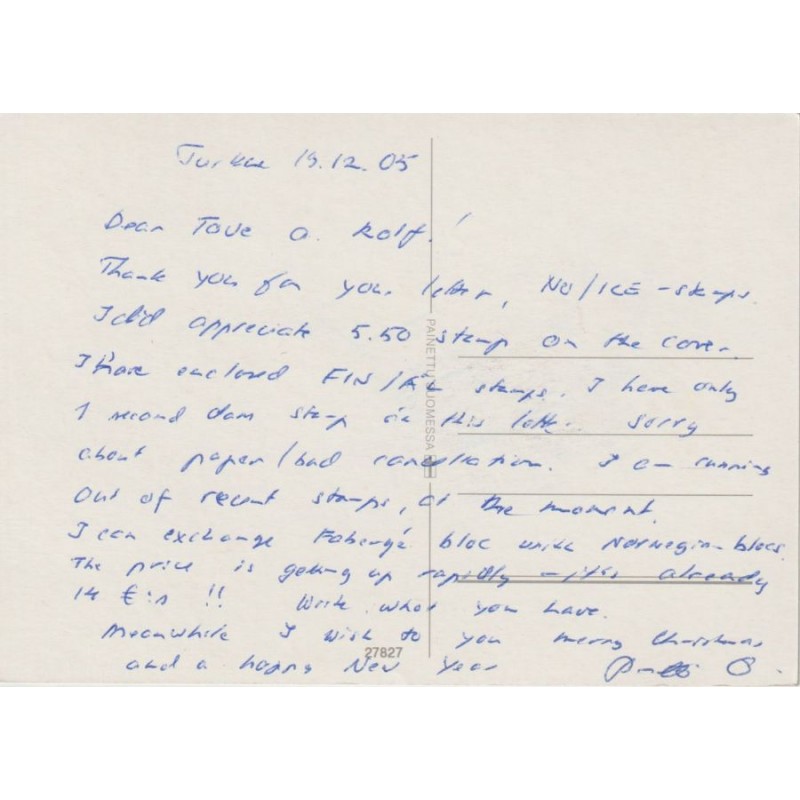 Turku 19.12.05
Dear Tove o. Rolf!
Thank you for your letter, NO/ICE-stamps.
I did appreciate 5.50 stamp on the cover.
I have enclosed FIN/ stamps. I have only
1 second dam stamp in this letter. Sorry
about paper/bad cancellation. I am running
out of recent stamps, at the moment.
I can exchange Fabergé bloc with Norwegian blocs.
The price is getting up rapidly - it's already
14 €:n !! Write what you have.
Meanwhile I wish to you merry Christmas
and a happy New Year Pentti O.
PAINETTU SUOMESSA
27827